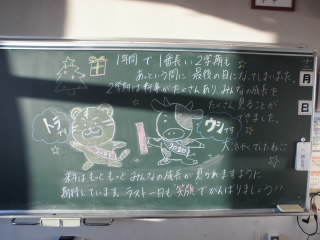 1年間で1番長い2学期も
あっという間に最後の日になってしまいました。
2学期は行事がたくさんあり、みんなの成長を
たくさん見ることが
できました。
トラです
ウシです
来年はもっともっとみんなの成長が見られますように
期待しています。ラスト一日も笑顔でがんばりましょう!!
十二
月
日